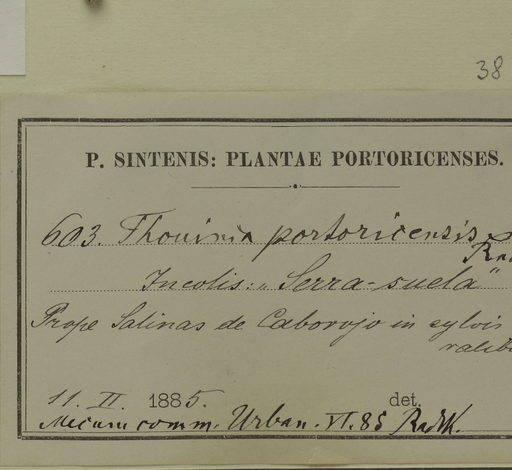 38
P. SINTENIS: PLANTAE PORTORICENSES.
603. Thouinia portoricensis
Incolis: „Serra-suela"
Prope Salinas de Caborojo in sylvis
11. II. 1885. det.
Mecum comm. Urban. VI. 85 Radlk.